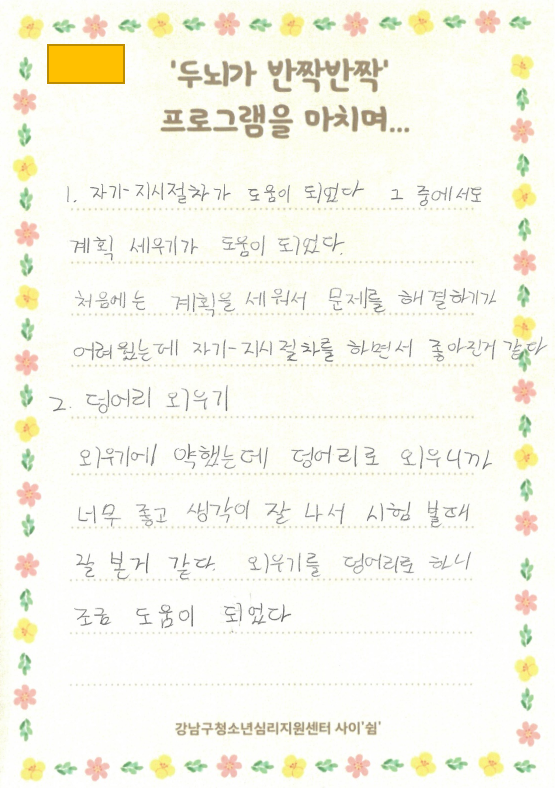 '두뇌가 반짝반짝'
프로그램을 마치며...
1. 자기-지시절차가 도움이 되었다 그 중에서도
계획 세우기가 도움이 되었다.
처음에는 계획을 세워서 문제를 해결하기가
어려웠는데 자기-지시절차를 하면서 좋아진거 같다
2. 덩어리 외우기
외우기에 약했는데 덩어리로 외우니까
너무 좋고 생각이 잘 나서 시험 볼때
잘 본거 같다. 외우기를 덩어리로 하니
조금 도움이 되었다
강남구청소년심리지원센터 사이'쉼'